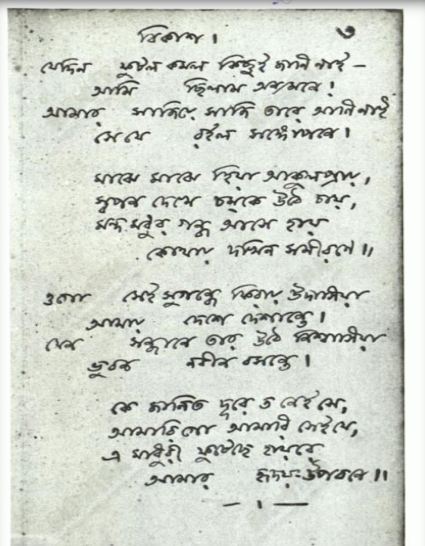 বিকাশ। ৩
যেদিন ফুটল কমল কিছুই জানি নাই –
আমি ছিলাম অন্যমনে!
আমার সাজিয়ে সাজি তারে আনি নাই
সে যে রইল সঙ্গোপনে।
মাঝে মাঝে হিয়া আকুলপ্রায়,
স্বপন দেখে চমকে উঠে চায়,
মন্দ মধুর গন্ধ আসে হায়
কোথায় দখিন সমীরণে॥
ওগো সেই সুগন্ধে ফিরায় উদাসিয়া
আমায় দেশে দেশান্তে।
যেন সন্ধানে তার উঠে নিশ্বাসিয়া
ভুবন নবীন বসন্তে।
কে জানিত দূরে ত নেই সে,
আমারি গো আমারি সেই যে,
এ মাধুরী ফুটেছে হায়রে
আমার হৃদয়-উপবনে॥